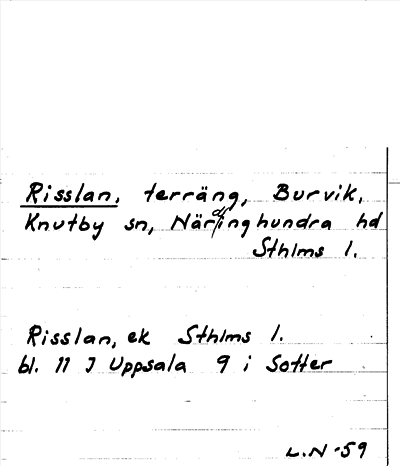 Risslan, terräng, Burvik,
Knutby sn, Närdinghundra hd
Sthlms l.
Risslan, ek Sthlms l.
bl. 11 J Uppsala 9 i Sotter
L.N -59